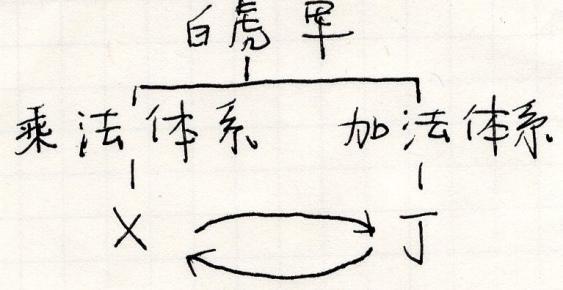 白虎军
乘法体系 加法体系
X 丁